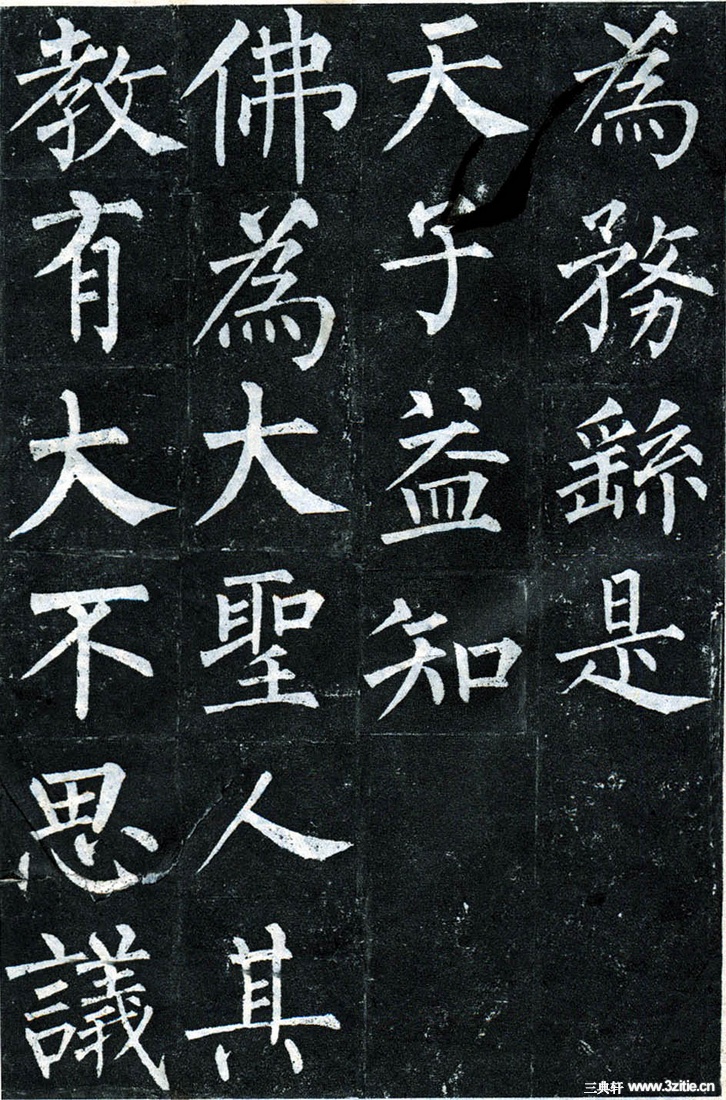 為務繇是
天子益知
佛為大聖人其
教有大不思議
三典轩 www.3zitie.cn